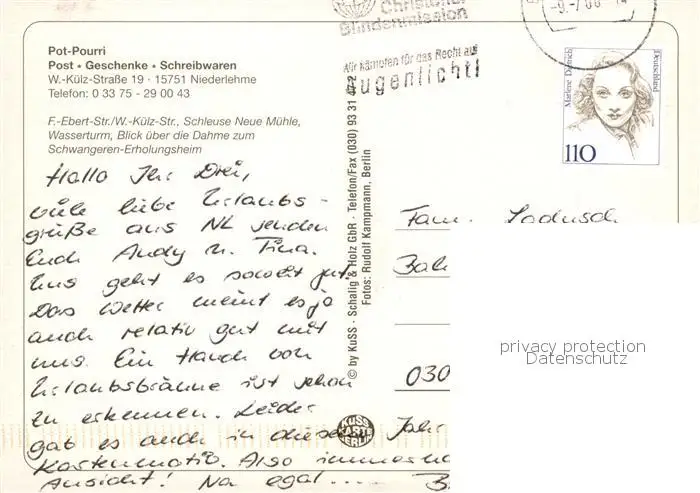 Christoffel
Blindenmission
-9.-7.00-14
Wir kämpfen für das Recht auf
Augenlicht!
Pot-Pourri
Post • Geschenke • Schreibwaren
W.-Külz-Straße 19 · 15751 Niederlehme
Telefon: 0 33 75 - 29 00 43
F.-Ebert-Str./W.-Külz-Str., Schleuse Neue Mühle,
Wasserturm, Blick über die Dahme zum
Schwangeren-Erholungsheim
Hallo Ihr Drei,
viele liebe Urlaubs-
grüße aus NL senden
Euch Andy u. Tina.
Uns geht es soweit gut.
Das Wetter meint es ja
auch relativ gut mit
uns. Ein Hauch von
Urlaubsbräune ist schon
zu erkennen. Leider
gab es auch in diesem Jahr
Kartenmotiv. Also immer
Ansicht! Na egal....
© by KuSS · Schalig & Holz GbR · Telefon/Fax (030) 93 31
Fotos: Rudolf Kampmann, Berlin
Marlene Dietrich
Deutschland
110
Fam. Sadusch
Bah
030
KUSS
KARTE
BERLIN
privacy protection
Datenschutz